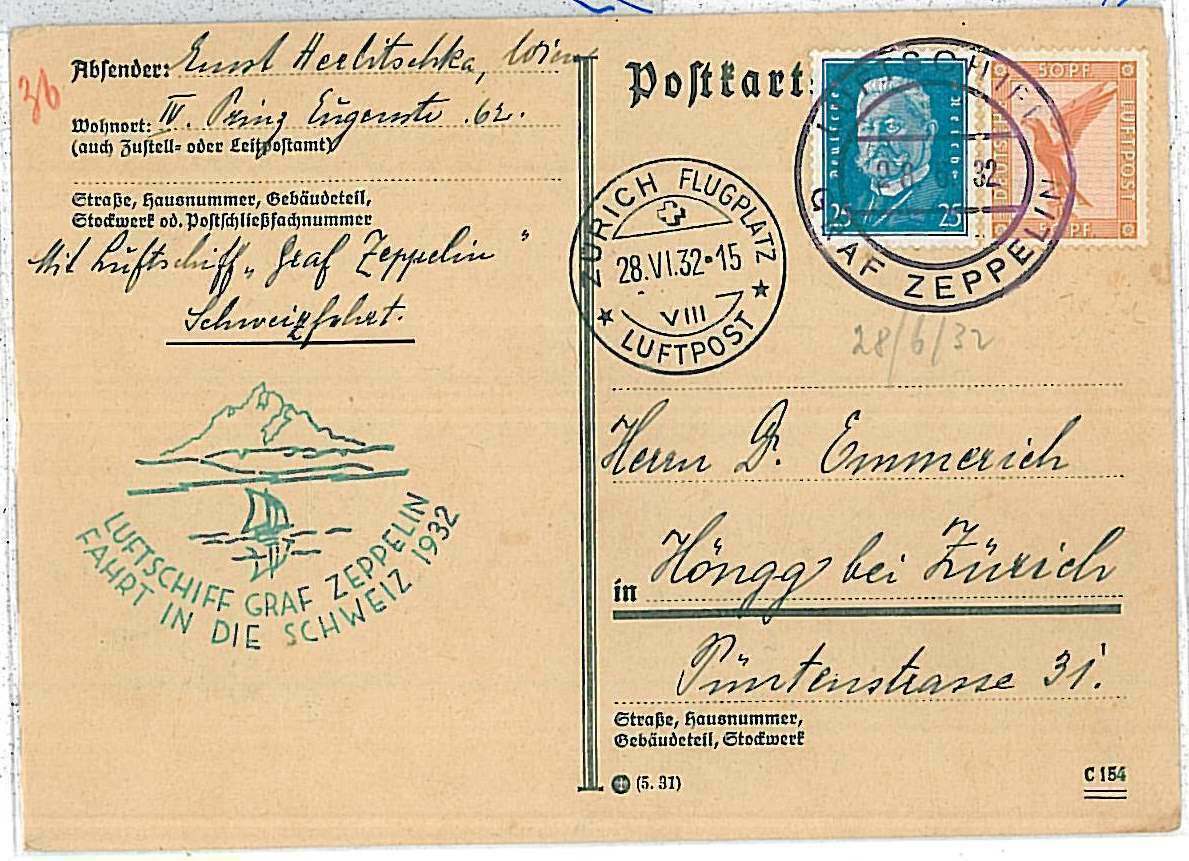 36
Absender: Ernst Herlitschka, Wien
Wohnort: IV. Prinz Eugenstr. 62.
(auch Zustell- oder Leitpostamt)
Straße, Hausnummer, Gebäudeteil,
Stockwerk od. Postschließfachnummer
Mit Luftschiff „Graf Zeppelin“
Schweizfahrt.
LUFTSCHIFF GRAF ZEPPELIN
FAHRT IN DIE SCHWEIZ 1932
Postkarte
Deutsches Reich
25 25
50 PF.
DEUTSCHE LUFTPOST
50 PF.
LUFTSCHIFF
28. 6. 32
GRAF ZEPPELIN
ZÜRICH FLUGPLATZ
28.VI.32•15
VIII
LUFTPOST
28/6/32
Herrn Dr. Emmerich
in Höngg bei Zürich
Püntenstrasse 31.
Straße, Hausnummer,
Gebäudeteil, Stockwerk
(5. 31)
C 154